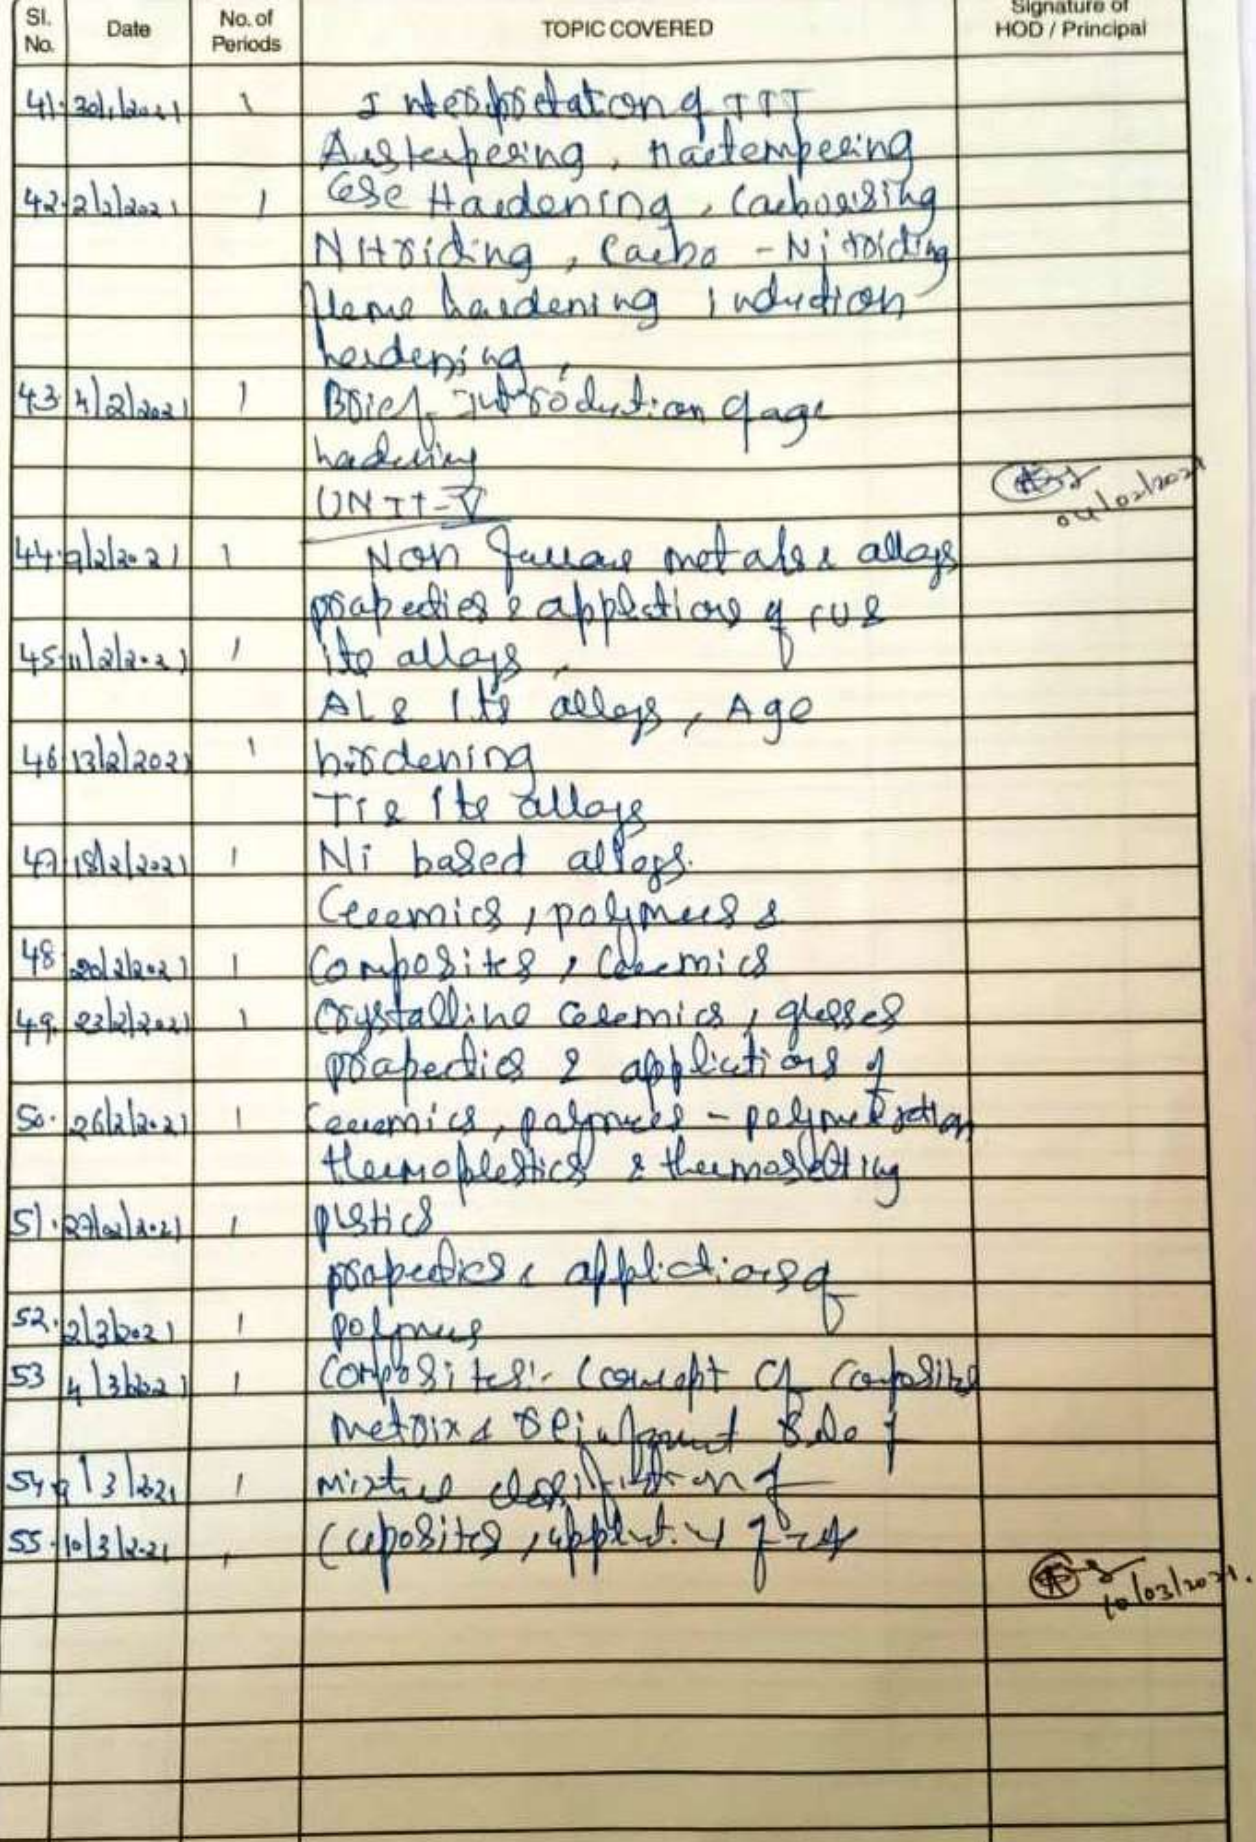 Sl. No. Date No. of Periods TOPIC COVERED Signature of HOD / Principal
41. 30/1/2021 1 Interpretation of TTT
Austempering, Martempering
42. 2/2/2021 1 Case Hardening, Carborising
Nitriding, Carbo - Nitriding
flame hardening induction
hardening,
43. 4/2/2021 1 Brief introduction of age
hardening
UNIT-V
04/02/2021
44. 9/2/2021 1 Non ferrous metals & alloys
properties & applictions of CU &
45. 11/2/2021 1 its alloys,
AL & Its alloys, Age
46 13/2/2021 1 hardening
Ti & Its alloys
47 18/2/2021 1 Ni based alloys.
Ceramics, polymers &
48 20/2/2021 1 Composites, Ceramics
49. 23/2/2021 1 Crystalline ceramics, glasses
properties & applictions of
50. 26/2/2021 1 ceramics, polymers - polymerization
thermoplastics & thermosetting
51. 27/02/2021 1 plstics
properties & applictions of
52. 2/3/2021 1 polymers
53 4/3/2021 1 Composites:- Concept of Composites
Matrix & reinforment Rule of
54 9/3/2021 1 mixture classifiction of
55. 10/3/2021 Composites,
10/03/2021.